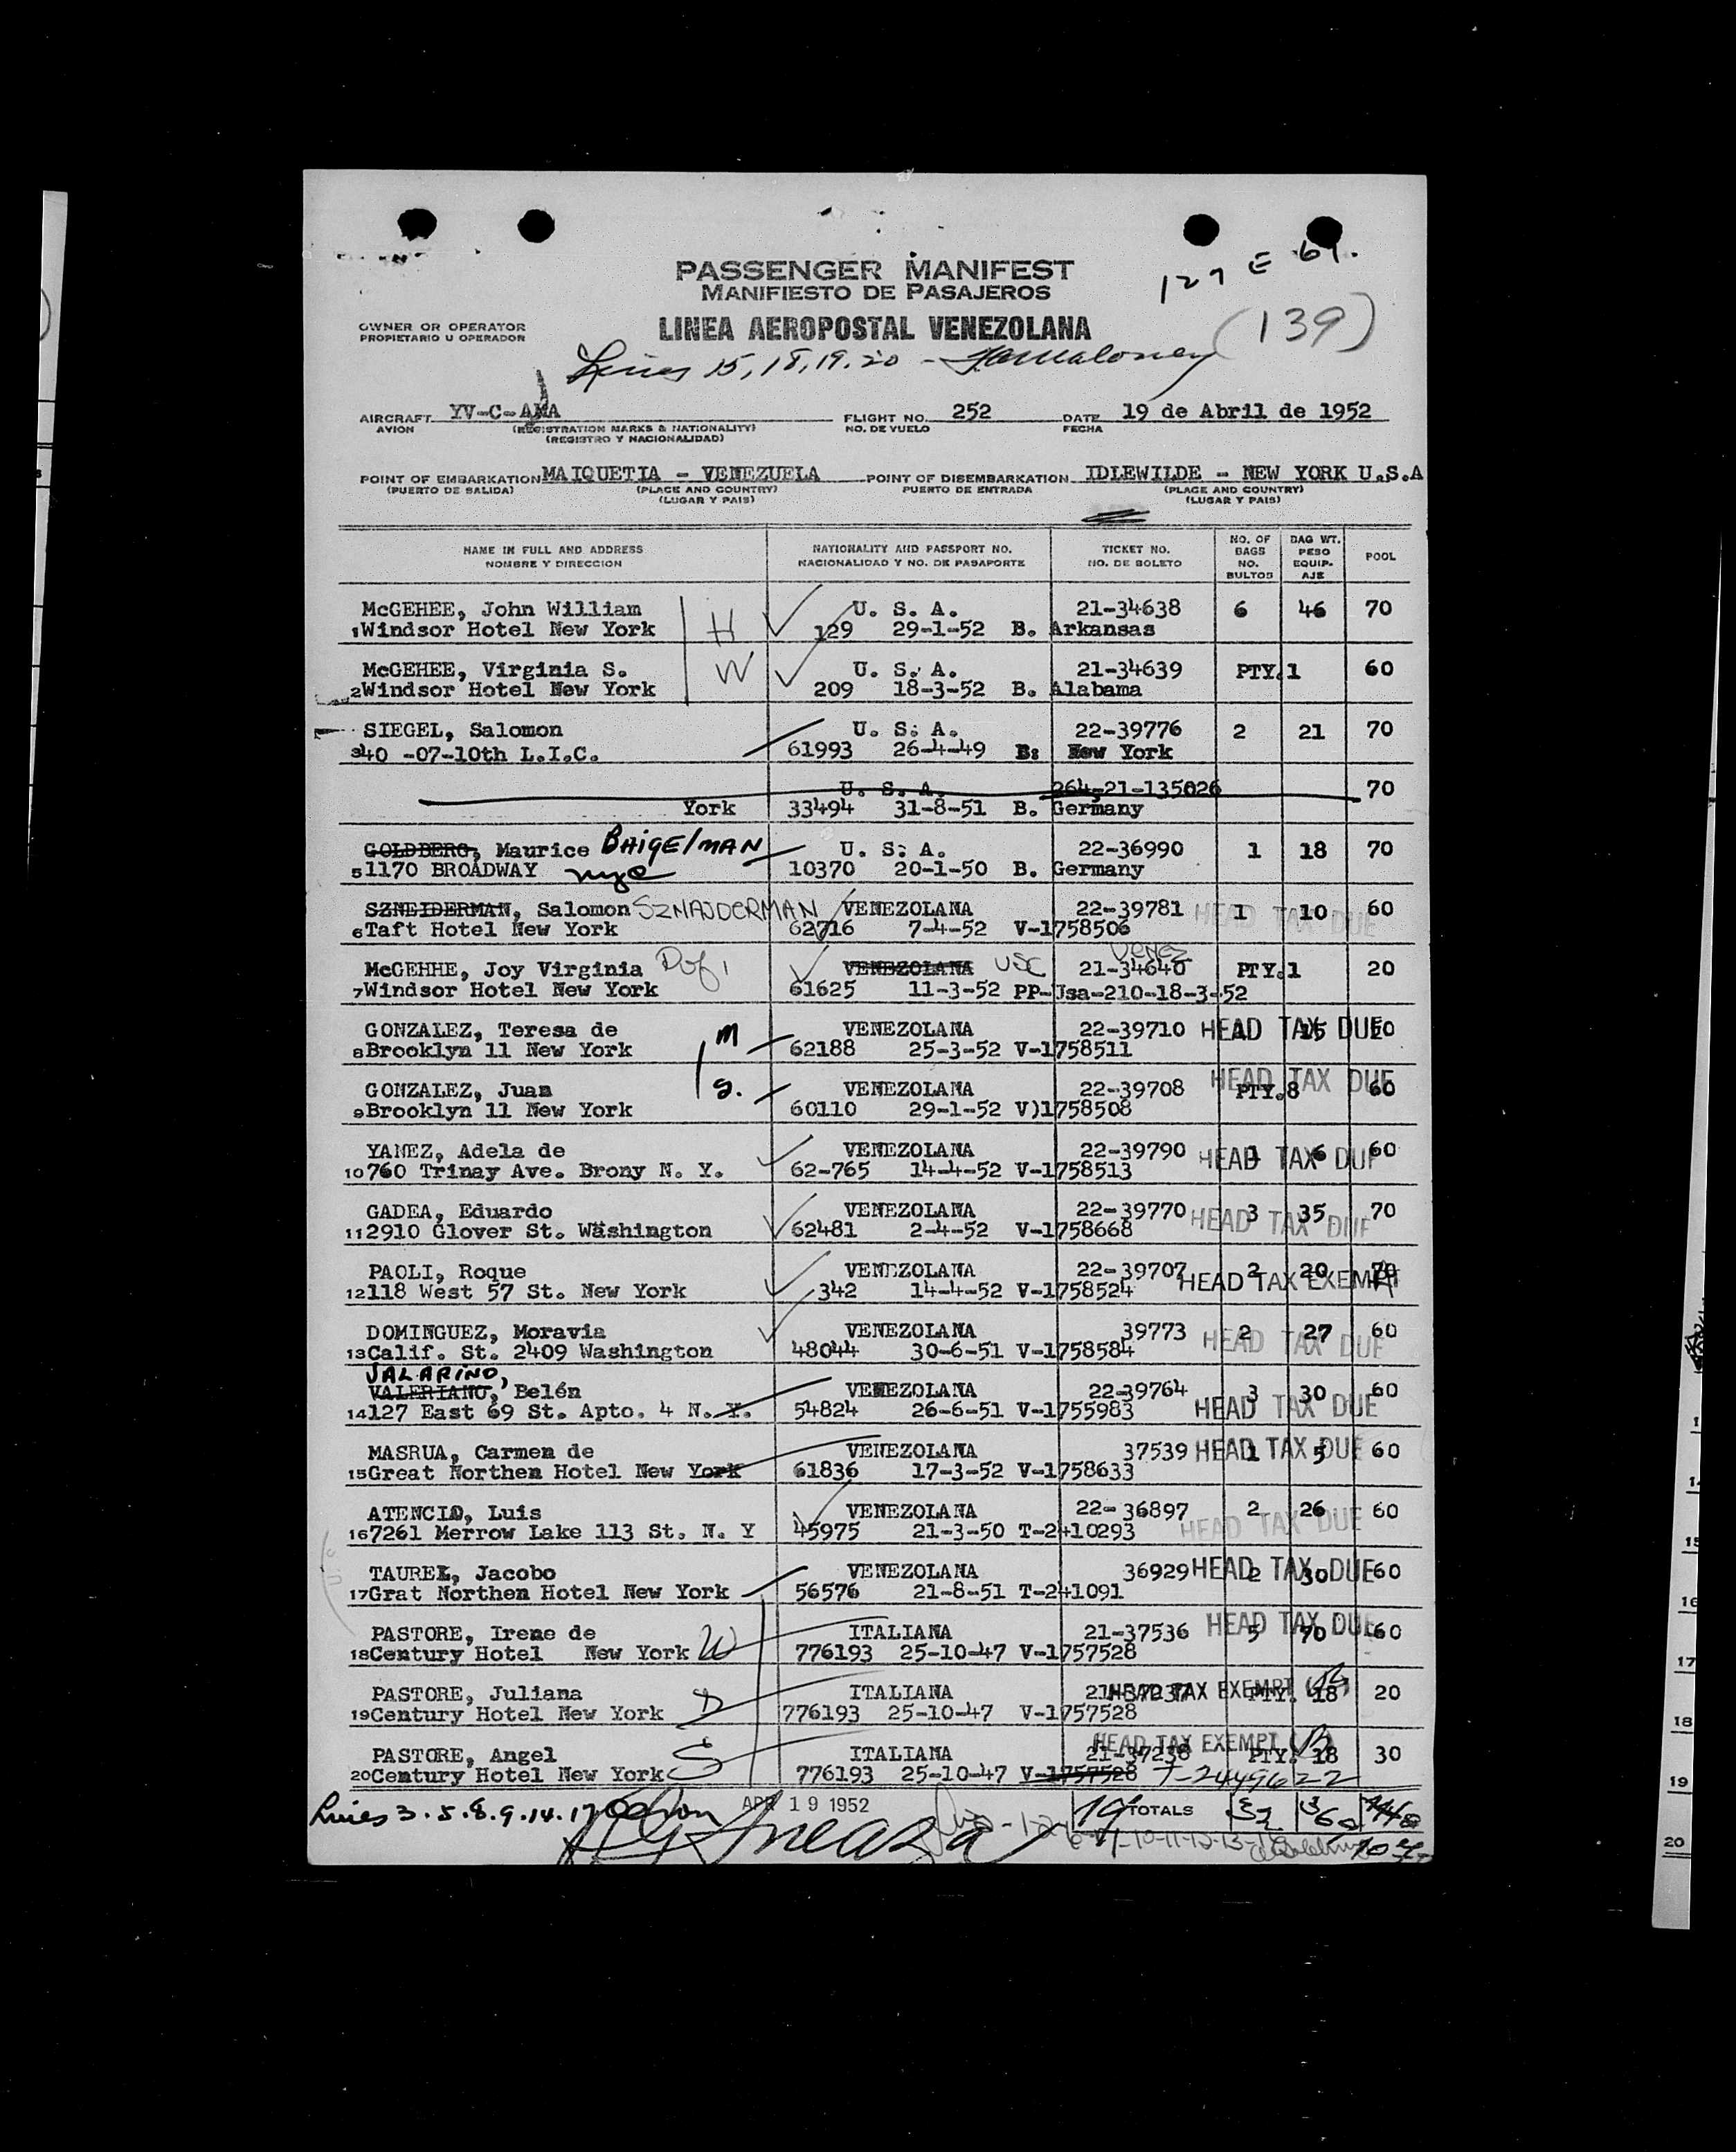 127 E 61.
PASSENGER MANIFEST
MANIFIESTO DE PASAJEROS
(139)
OWNER OR OPERATOR
PROPIETARIO U OPERADOR
LINEA AEROPOSTAL VENEZOLANA
Lines 15, 18, 19, 20 -
AIRCRAFT YV-C-AMA FLIGHT NO. 252 DATE 19 de Abril de 1952
AVION (REGISTRATION MARKS & NATIONALITY) NO. DE VUELO FECHA
(REGISTRO Y NACIONALIDAD)
POINT OF EMBARKATION MAIQUETIA - VENEZUELA POINT OF DISEMBARKATION IDLEWILDE - NEW YORK U.S.A
(PUERTO DE SALIDA) (PLACE AND COUNTRY) PUERTO DE ENTRADA (PLACE AND COUNTRY)
(LUGAR Y PAIS) (LUGAR Y PAIS)
NAME IN FULL AND ADDRESS NATIONALITY AND PASSPORT NO. TICKET NO. NO. OF BAGS BAG WT. POOL
NOMBRE Y DIRECCION NACIONALIDAD Y NO. DE PASAPORTE NO. DE BOLETO NO. BULTOS PESO EQUIP-AJE
McGEHEE, John William U. S. A. 21-34638 6 46 70
1 Windsor Hotel New York H 129 29-1-52 B. Arkansas
McGEHEE, Virginia S. W U. S. A. 21-34639 PTY.1 60
2 Windsor Hotel New York 209 18-3-52 B. Alabama
SIEGEL, Salomon U. S. A. 22-39776 2 21 70
3 40 -07-10th L.I.C. 61993 26-4-49 B: New York
U. S. A. 264-21-135026 70
York 33494 31-8-51 B. Germany
GOLDBERG, Maurice BAIGElMAN U. S. A. 22-36990 1 18 70
5 1170 BROADWAY nyc 10370 20-1-50 B. Germany
SZNEIDERMAN, Salomon SZNAJDERMAN VENEZOLANA 22-39781 HEAD TAX DUE 1 10 60
6 Taft Hotel New York 62716 7-4-52 V-1758506
McGEHHE, Joy Virginia VENEZOLANA USC VENEZ 21-34640 PTY.1 20
7 Windsor Hotel New York 61625 11-3-52 PP-Usa-210-18-3-52
GONZALEZ, Teresa de M VENEZOLANA 22-39710 HEAD TAX DUE 1 15 60
8 Brooklyn 11 New York 62188 25-3-52 V-1758511
GONZALEZ, Juan S. VENEZOLANA 22-39708 HEAD TAX DUE PTY.8 60
9 Brooklyn 11 New York 60110 29-1-52 V)1758508
YANEZ, Adela de VENEZOLANA 22-39790 HEAD TAX DUE 1 6 60
10 760 Trinay Ave. Brony N. Y. 62-765 14-4-52 V-1758513
GADEA, Eduardo VENEZOLANA 22-39770 HEAD TAX DUE 3 35 70
11 2910 Glover St. Washington 62481 2-4-52 V-1758668
PAOLI, Roque VENEZOLANA 22-39707 HEAD TAX EXEMPT 2 20 70
12 118 West 57 St. New York 342 14-4-52 V-1758524
DOMINGUEZ, Moravia VENEZOLANA 39773 HEAD TAX DUE 2 27 60
13 Calif. St. 2409 Washington 48044 30-6-51 V-1758584
VALARINO,
VALERIANO, Belén VENEZOLANA 22-39764 HEAD TAX DUE 3 30 60
14 127 East 69 St. Apto. 4 N. Y. 54824 26-6-51 V-1755983
MASRUA, Carmen de VENEZOLANA 37539 HEAD TAX DUE 1 5 60
15 Great Northen Hotel New York 61836 17-3-52 V-1758633
ATENCIO, Luis VENEZOLANA 22-36897 HEAD TAX DUE 2 26 60
16 7261 Merrow Lake 113 St. N. Y 45975 21-3-50 T-2410293
TAUREL, Jacobo VENEZOLANA 36929 HEAD TAX DUE 2 30 60
17 Grat Northen Hotel New York 56576 21-8-51 T-241091
PASTORE, Irene de W ITALIANA 21-37536 HEAD TAX DUE 5 70 60
18 Century Hotel New York 776193 25-10-47 V-1757528
PASTORE, Juliana D ITALIANA HEAD TAX EXEMPT PTY. 18 20
19 Century Hotel New York 776193 25-10-47 V-1757528
PASTORE, Angel S ITALIANA 21-37238 HEAD TAX EXEMPT PTY. 18 30
20 Century Hotel New York 776193 25-10-47 V-1757528 T-2449622
Lines 3.5.8.9.14.17 APR 19 1952 19 TOTALS 32